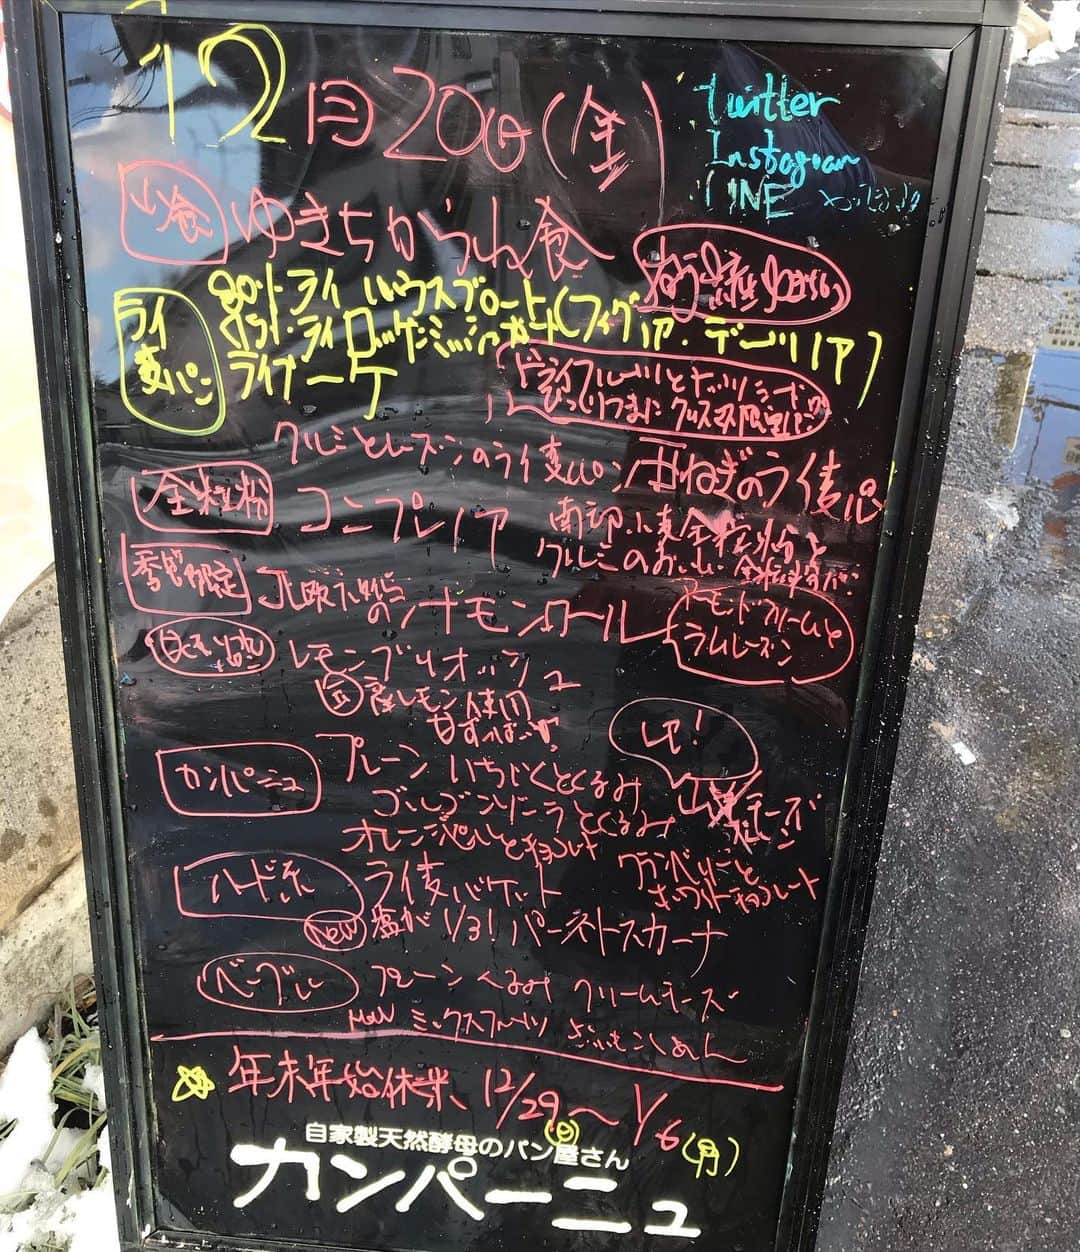 12月20日(金)
twitter
Instagram
LINE やってます
山食 ゆきちから山食
ライ麦パン
ライ ハウスブロート(フィグリア・デーツリア)
ライブーケ
ドライフルーツとナッツ
びっしりつまった クリスマス限定パン
クルミとレーズンのライ麦パン 玉ねぎのライ麦パン
全粒粉 コンプレノア 南部小麦全粒粉と
クルミのおいしい全粒粉パン
季節限定 北欧
のシナモンロール アーモンドクリームと
ラムレーズン
レモンブリオッシュ
産レモン使用
甘ずっぱい
レア!
カンパーニュ プレーン いちじくとくるみ
ゴルゴンゾーラとくるみ チーズ
オレンジピールとチョコレート クランベリーと
ホワイトチョコレート
ハード系 ライ麦バケット
New 塩が パーネトスカーナ
ベーグル プレーン くるみ クリームチーズ
New ミックスフルーツ さつまいもこしあん
年末年始休業 12/29(日)〜1/6(月)
自家製天然酵母のパン屋さん
カンパーニュ